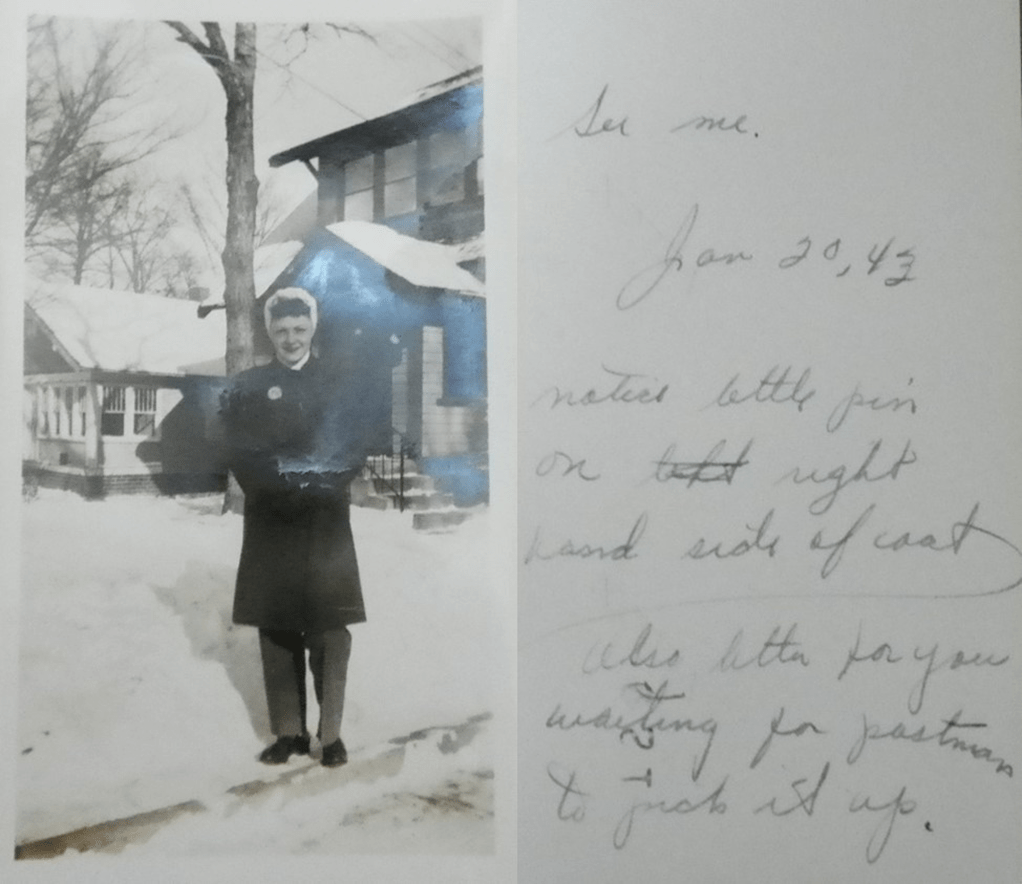 See me.
Jan 20, 43
notice little pin
on left right
hand side of coat
Also letter for you
waiting for postman
to pick it up.